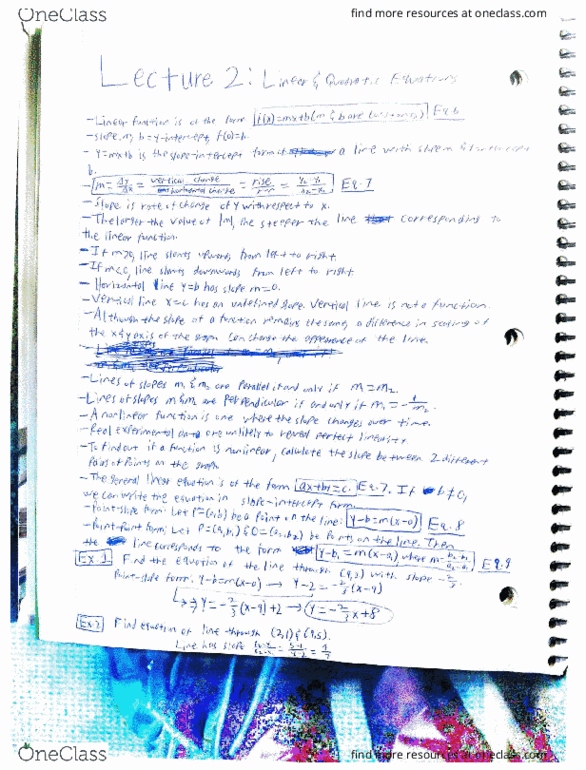 OneClass
find more resources at oneclass.com
Lecture 2: Linear & Quadratic Equations
- Linear function is of the form f(x)=mx+b (m & b are constants) Eq. 6
- slope m, b=y-intercept, f(0)=b.
- y=mx+b is the slope-intercept form of a line with slope m &
b.
- m = Δy/Δx = vertical change/horizontal change = rise/run = y₂-y₁/x₂-x₁ Eq. 7
- Slope is rate of change of y with respect to x.
- The larger the value of |m|, the steeper the line corresponding to
the linear function.
- If m>0, line slants upwards from left to right.
- If m<0, line slants downwards from left to right
- Horizontal line y=b has slope m=0.
- Vertical line x=c has an undefined slope. Vertical line is not a function.
- Although the slope of a function remains the same, a difference in scaling of
the x & y axis of the graph can change the appearance of the line.
- Lines of slopes m₁ & m₂ are parallel if and only if m₁=m₂.
- Lines of slopes m₁ & m₂ are perpendicular if and only if m₁=-1/m₂.
- A nonlinear function is one where the slope changes over time.
- Real experimental data are unlikely to reveal perfect linearity.
- To find out if a function is nonlinear, calculate the slope between 2 different
pairs of points on the graph
- The general linear equation is of the form ax+by=c. Eq. 7. If b≠0,
we can write the equation in slope-intercept form.
- Point-slope form: Let P=(a,b) be a point on the line: y-b=m(x-a) Eq. 8
- Point-point form: Let P=(a₁,b₁) & Q=(a₂,b₂) be points on the line. Then
the line corresponds to the form y-b₁=m(x-a₁) where m=b₂-b₁/a₂-a₁ Eq. 9
Ex. 1 Find the equation of the line through (9,2) with slope -2/3.
Point-slope form: y-b=m(x-a) → y-2=-2/3(x-9)
→ y=-2/3(x-9)+2 → y=-2/3x+8
Ex. 2 Find equation of line through (2,1) & (9,5).
Line has slope
OneClass
find more resources at oneclass.com